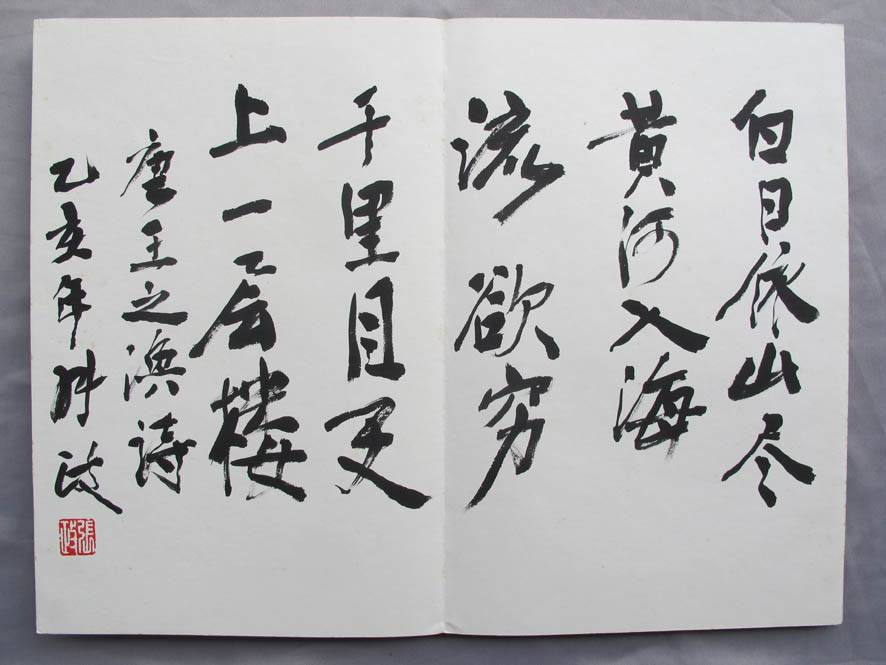 白日依山尽
黄河入海
流欲穷
千里目更
上一层楼
唐王之涣诗
乙亥年张政
張政